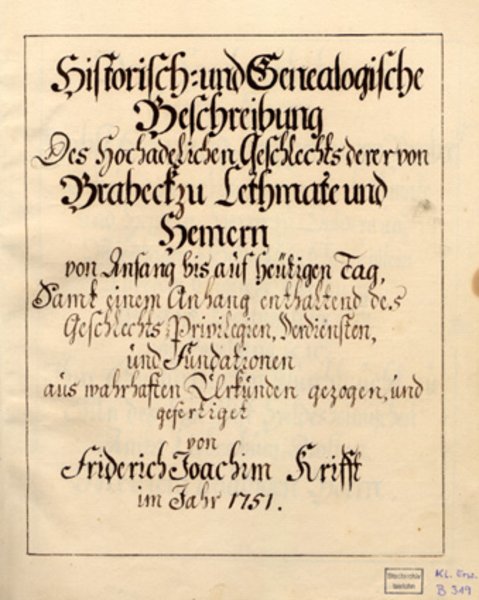 Historisch- und Genealogische
Beschreibung
Des Hochadelichen Geschlechts derer von
Brabeck zu Lethmate und
Hemern
von Anfang bis auf heütigen Tag,
Samt einem Anhang enthaltend des
Geschlechts Privilegien, Verdiensten,
und Fundationen
aus wahrhaften Urkünden gezogen, und
gefertiget
von
Friderich Joachim Krifft
im Jahr 1751.
Stadtarchiv
Iserlohn
KL. Erw.
B 319